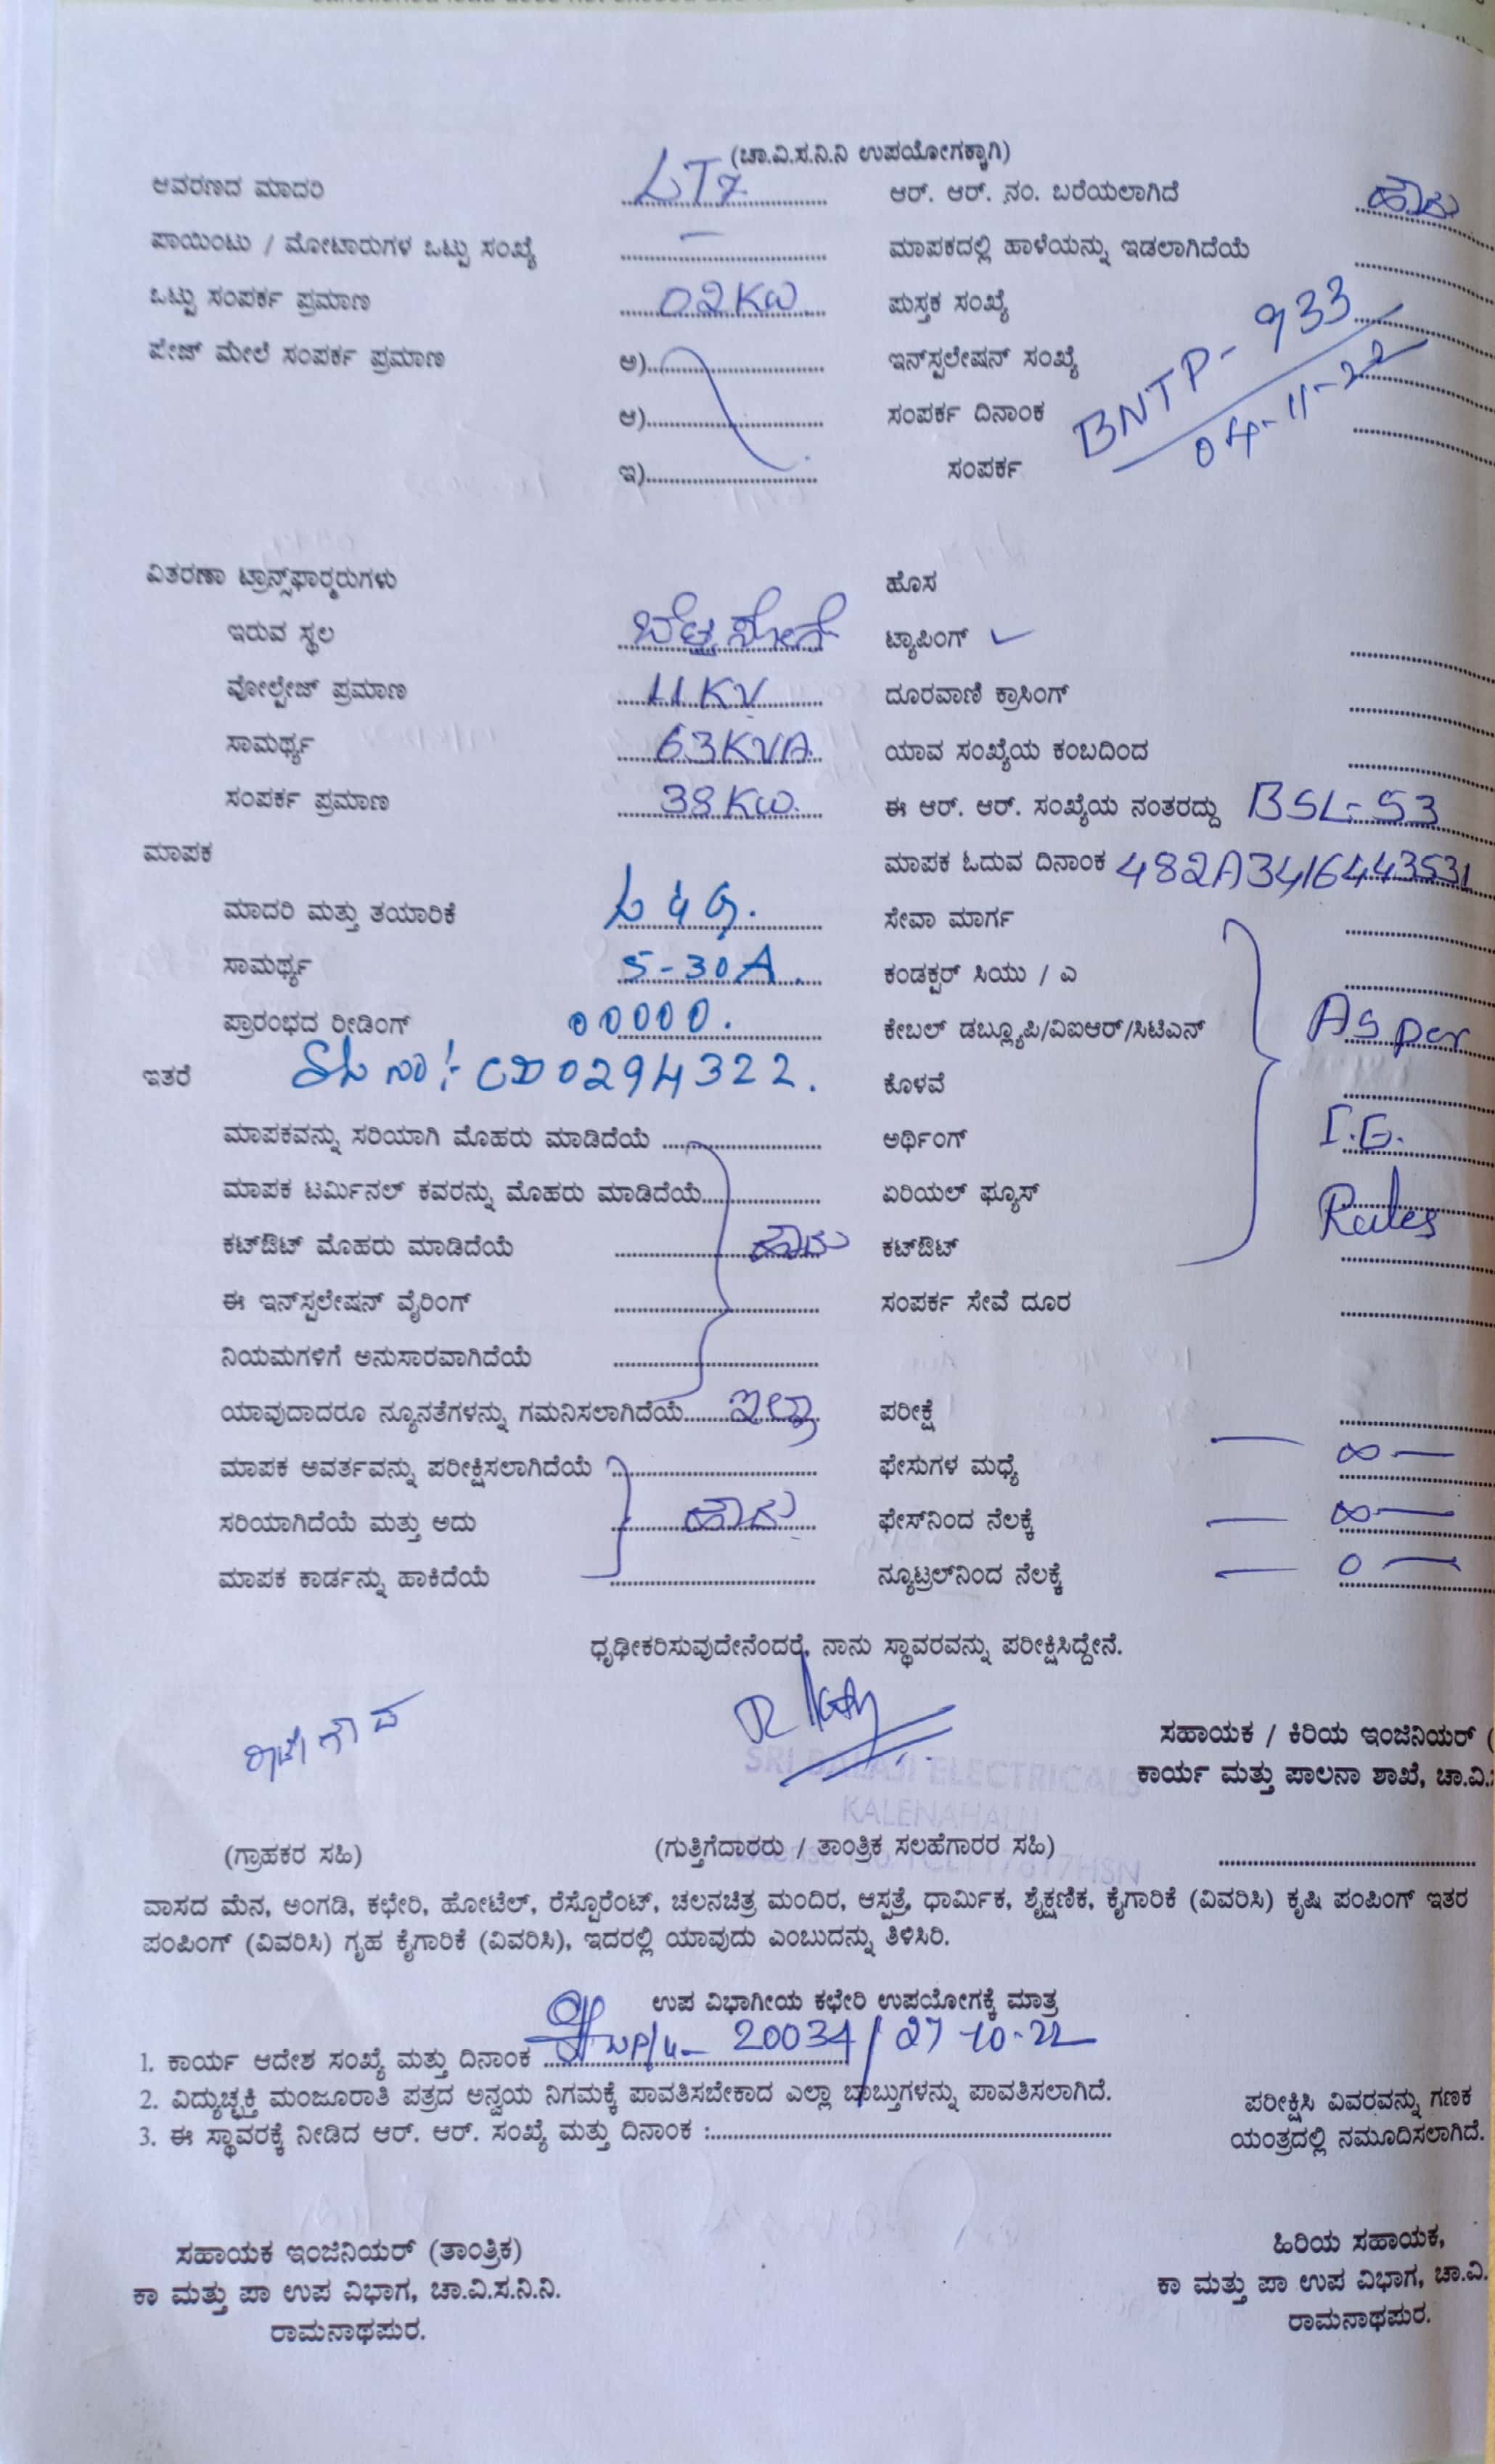 (ಚಾ.ವಿ.ಸ.ನಿ.ನಿ ಉಪಯೋಗಕ್ಕಾಗಿ)
ಆವರಣದ ಮಾದರಿ LT7 ಆರ್. ಆರ್. ನಂ. ಬರೆಯಲಾಗಿದೆ ಹೌದು
ಪಾಯಿಂಟು / ಮೋಟಾರುಗಳ ಒಟ್ಟು ಸಂಖ್ಯೆ — ಮಾಪಕದಲ್ಲಿ ಹಾಳೆಯನ್ನು ಇಡಲಾಗಿದೆಯೆ
ಒಟ್ಟು ಸಂಪರ್ಕ ಪ್ರಮಾಣ 02KW ಪುಸ್ತಕ ಸಂಖ್ಯೆ
ಪೇಜ್ ಮೇಲೆ ಸಂಪರ್ಕ ಪ್ರಮಾಣ ಅ) ಇನ್‌ಸ್ಟಲೇಷನ್ ಸಂಖ್ಯೆ BNTP-933
ಆ) ಸಂಪರ್ಕ ದಿನಾಂಕ 04-11-22
ಇ) ಸಂಪರ್ಕ
ವಿತರಣಾ ಟ್ರಾನ್ಸ್‌ಫಾರ್‍ಮರುಗಳು ಹೊಸ
ಇರುವ ಸ್ಥಲ ಟ್ಯಾಪಿಂಗ್ ✓
ವೋಲ್ಟೇಜ್ ಪ್ರಮಾಣ 11KV ದೂರವಾಣಿ ಕ್ರಾಸಿಂಗ್
ಸಾಮರ್ಥ್ಯ 63KVA ಯಾವ ಸಂಖ್ಯೆಯ ಕಂಬದಿಂದ
ಸಂಪರ್ಕ ಪ್ರಮಾಣ 38KW. ಈ ಆರ್. ಆರ್. ಸಂಖ್ಯೆಯ ನಂತರದ್ದು BSL-53
ಮಾಪಕ ಮಾಪಕ ಓದುವ ದಿನಾಂಕ 482A3416443531
ಮಾದರಿ ಮತ್ತು ತಯಾರಿಕೆ L&G. ಸೇವಾ ಮಾರ್ಗ
ಸಾಮರ್ಥ್ಯ 5-30A. ಕಂಡಕ್ಟರ್ ಸಿಯು / ಎ
ಪ್ರಾರಂಭದ ರೀಡಿಂಗ್ 00000. ಕೇಬಲ್ ಡಬ್ಲ್ಯೂಪಿ/ವಿಐಆರ್/ಸಿಟಿಎನ್ As per
ಇತರೆ SL no:- CD0294322. ಕೊಳವೆ
ಮಾಪಕವನ್ನು ಸರಿಯಾಗಿ ಮೊಹರು ಮಾಡಿದೆಯೆ ಅರ್ಥಿಂಗ್ I.E.
ಮಾಪಕ ಟರ್ಮಿನಲ್ ಕವರನ್ನು ಮೊಹರು ಮಾಡಿದೆಯೆ ಏರಿಯಲ್ ಫ್ಯೂಸ್ Rules
ಕಟ್‌ಔಟ್ ಮೊಹರು ಮಾಡಿದೆಯೆ ಹೌದು ಕಟ್‌ಔಟ್
ಈ ಇನ್‌ಸ್ಟಲೇಷನ್ ವೈರಿಂಗ್ ಸಂಪರ್ಕ ಸೇವೆ ದೂರ
ನಿಯಮಗಳಿಗೆ ಅನುಸಾರವಾಗಿದೆಯೆ
ಯಾವುದಾದರೂ ನ್ಯೂನತೆಗಳನ್ನು ಗಮನಿಸಲಾಗಿದೆಯೆ ಇಲ್ಲಾ ಪರೀಕ್ಷೆ
ಮಾಪಕ ಅವರ್ತವನ್ನು ಪರೀಕ್ಷಿಸಲಾಗಿದೆಯೆ ಫೇಸುಗಳ ಮಧ್ಯೆ — ∞ —
ಸರಿಯಾಗಿದೆಯೆ ಮತ್ತು ಅದು ಹೌದು ಫೇಸ್‌ನಿಂದ ನೆಲಕ್ಕೆ — ∞ —
ಮಾಪಕ ಕಾರ್ಡನ್ನು ಹಾಕಿದೆಯೆ ನ್ಯೂಟ್ರಲ್‌ನಿಂದ ನೆಲಕ್ಕೆ — 0 —
ಧೃಢೀಕರಿಸುವುದೇನೆಂದರೆ, ನಾನು ಸ್ಥಾವರವನ್ನು ಪರೀಕ್ಷಿಸಿದ್ದೇನೆ.
ಸಹಾಯಕ / ಕಿರಿಯ ಇಂಜಿನಿಯರ್ (
SRI BALAJI ELECTRICALS ಕಾರ್ಯ ಮತ್ತು ಪಾಲನಾ ಶಾಖೆ, ಚಾ.ವಿ.
KALENAHALLI
(ಗ್ರಾಹಕರ ಸಹಿ) (ಗುತ್ತಿಗೆದಾರರು / ತಾಂತ್ರಿಕ ಸಲಹೆಗಾರರ ಸಹಿ)
ವಾಸದ ಮೆನ, ಅಂಗಡಿ, ಕಛೇರಿ, ಹೋಟೆಲ್, ರೆಸ್ಟೊರೆಂಟ್, ಚಲನಚಿತ್ರ ಮಂದಿರ, ಆಸ್ಪತ್ರೆ, ಧಾರ್ಮಿಕ, ಶೈಕ್ಷಣಿಕ, ಕೈಗಾರಿಕೆ (ವಿವರಿಸಿ) ಕೃಷಿ ಪಂಪಿಂಗ್ ಇತರ
ಪಂಪಿಂಗ್ (ವಿವರಿಸಿ) ಗೃಹ ಕೈಗಾರಿಕೆ (ವಿವರಿಸಿ), ಇದರಲ್ಲಿ ಯಾವುದು ಎಂಬುದನ್ನು ತಿಳಿಸಿರಿ.
ಉಪ ವಿಭಾಗೀಯ ಕಛೇರಿ ಉಪಯೋಗಕ್ಕೆ ಮಾತ್ರ
1. ಕಾರ್ಯ ಆದೇಶ ಸಂಖ್ಯೆ ಮತ್ತು ದಿನಾಂಕ 20034/27-10-22
2. ವಿದ್ಯುಚ್ಛಕ್ತಿ ಮಂಜೂರಾತಿ ಪತ್ರದ ಅನ್ವಯ ನಿಗಮಕ್ಕೆ ಪಾವತಿಸಬೇಕಾದ ಎಲ್ಲಾ ಬಾಬ್ತುಗಳನ್ನು ಪಾವತಿಸಲಾಗಿದೆ. ಪರೀಕ್ಷಿಸಿ ವಿವರವನ್ನು ಗಣಕ
3. ಈ ಸ್ಥಾವರಕ್ಕೆ ನೀಡಿದ ಆರ್. ಆರ್. ಸಂಖ್ಯೆ ಮತ್ತು ದಿನಾಂಕ : ಯಂತ್ರದಲ್ಲಿ ನಮೂದಿಸಲಾಗಿದೆ.
ಸಹಾಯಕ ಇಂಜಿನಿಯರ್ (ತಾಂತ್ರಿಕ) ಹಿರಿಯ ಸಹಾಯಕ,
ಕಾ ಮತ್ತು ಪಾ ಉಪ ವಿಭಾಗ, ಚಾ.ವಿ.ಸ.ನಿ.ನಿ. ಕಾ ಮತ್ತು ಪಾ ಉಪ ವಿಭಾಗ, ಚಾ.ವಿ.
ರಾಮನಾಥಪುರ. ರಾಮನಾಥಪುರ.